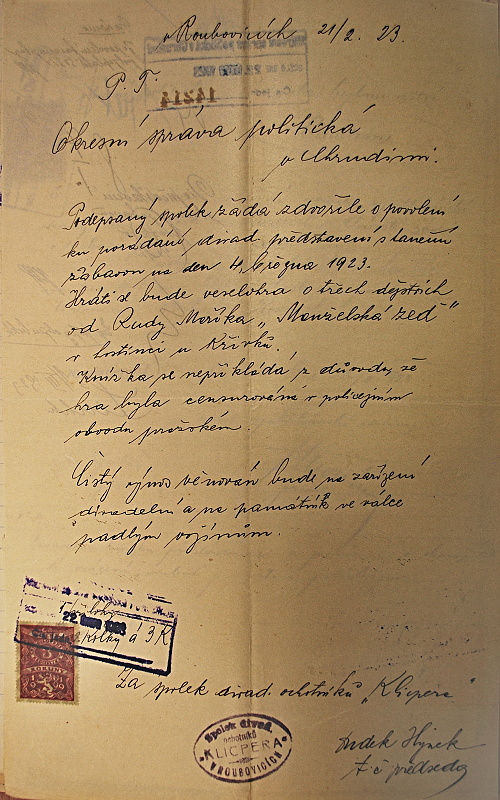 v Roubovicích 21/2. 23.
14214
P. T.
Okresní správa politická
v Chrudimi.
Podepsaný spolek žádá zdvořile o povolení
ku pořádání divad. představení s taneční
zábavou na den 4. března 1923.
Hráti se bude veselohra o třech dějstvích
od Rudy Maříka „Manželská zeď"
v hostinci u Křivků.
Knížka se nepřikládá z důvodu, že
hra byla censurována v policejním
obvodu pražském.
Čistý výnos věnován bude na zařízení
divadelní a na památník ve válce
padlým vojínům.
Kolky á 3 K
Za spolek divad. ochotníků „Klicpera"
Spolek divad.
ochotníků
KLICPERA
V ROUBOVICÍCH
Hynek
t. č. předseda